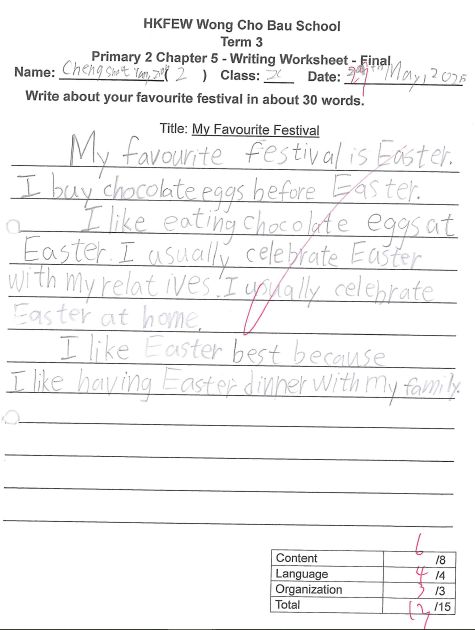 HKFEW Wong Cho Bau School
Term 3
Primary 2 Chapter 5 - Writing Worksheet - Final
Name: Cheng ( 2 ) Class: Date: May, 2025
Write about your favourite festival in about 30 words.
Title: My Favourite Festival
My favourite festival is Easter.
I buy chocolate eggs before Easter.
I like eating chocolate eggs at
Easter. I usually celebrate Easter
with my relatives. I usually celebrate
Easter at home.
I like Easter best because
I like having Easter dinner with my family.
Content 6 /8
Language 4 /4
Organization 3 /3
Total 13 /15